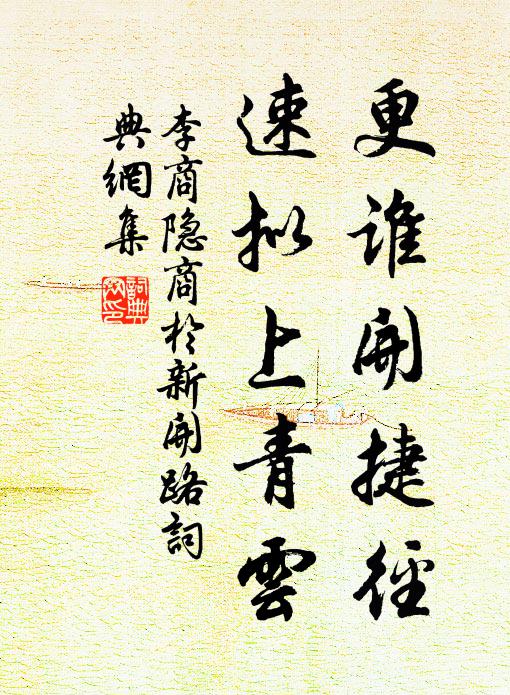 更谁开捷径
速拟上青雲
李商隐商於新开路詞
典網集
詞典
网印